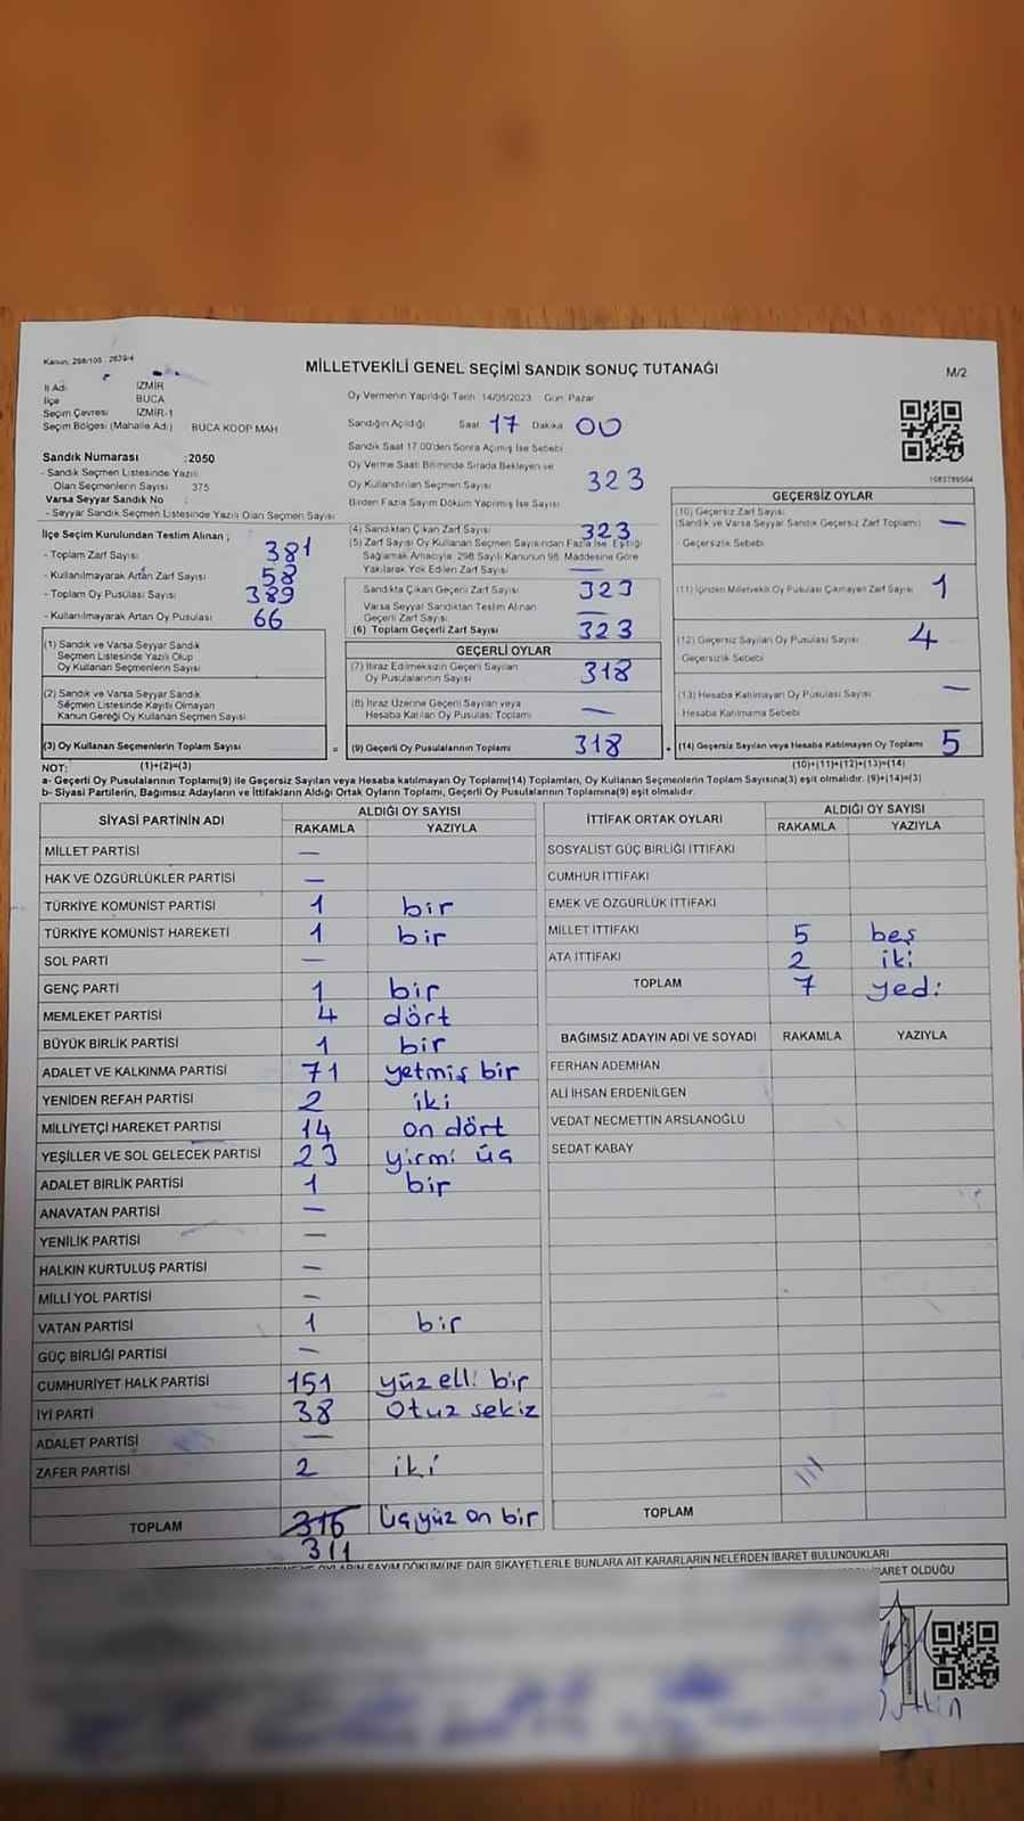 Kanun: 298/105 - 2839/4
MİLLETVEKİLİ GENEL SEÇİMİ SANDIK SONUÇ TUTANAĞI
M/2
İl Adı İZMİR
İlçe BUCA
Seçim Çevresi İZMİR-1
Seçim Bölgesi (Mahalle Adı) BUCA KOOP MAH
Sandık Numarası : 2050
- Sandık Seçmen Listesinde Yazılı
Olan Seçmenlerin Sayısı 375
Varsa Seyyar Sandık No :
- Seyyar Sandık Seçmen Listesinde Yazılı Olan Seçmen Sayısı
İlçe Seçim Kurulundan Teslim Alınan ;
- Toplam Zarf Sayısı 381
- Kullanılmayarak Artan Zarf Sayısı 58
- Toplam Oy Pusulası Sayısı 389
- Kullanılmayarak Artan Oy Pusulası 66
(1) Sandık ve Varsa Seyyar Sandık
Seçmen Listesinde Yazılı Olup
Oy Kullanan Seçmenlerin Sayısı
(2) Sandık ve Varsa Seyyar Sandık
Seçmen Listesinde Kayıtlı Olmayan
Kanun Gereği Oy Kullanan Seçmen Sayısı
(3) Oy Kullanan Seçmenlerin Toplam Sayısı =
Oy Vermenin Yapıldığı Tarih 14/05/2023 Gün: Pazar
Sandığın Açıldığı Saat 17 Dakika 00
Sandık Saat 17.00'den Sonra Açılmış İse Sebebi
Oy Verme Saati Bitiminde Sırada Bekleyen ve
Oy Kullandırılan Seçmen Sayısı 323
Birden Fazla Sayım Döküm Yapılmış İse Sayısı
(4) Sandıktan Çıkan Zarf Sayısı 323
(5) Zarf Sayısı Oy Kullanan Seçmen Sayısından Fazla İse, Eşitliği
Sağlamak Amacıyla, 298 Sayılı Kanunun 98. Maddesine Göre
Yakılarak Yok Edilen Zarf Sayısı —
Sandıkta Çıkan Geçerli Zarf Sayısı 323
Varsa Seyyar Sandıktan Teslim Alınan
Geçerli Zarf Sayısı —
(6) Toplam Geçerli Zarf Sayısı 323
GEÇERLİ OYLAR
(7) İtiraz Edilmeksizin Geçerli Sayılan
Oy Pusulalarının Sayısı 318
(8) İtiraz Üzerine Geçerli Sayılan veya
Hesaba Katılan Oy Pusulası Toplamı —
(9) Geçerli Oy Pusulalarının Toplamı 318
1083789564
GEÇERSİZ OYLAR
(10) Geçersiz Zarf Sayısı
(Sandık ve Varsa Seyyar Sandık Geçersiz Zarf Toplamı) —
Geçersizlik Sebebi
(11) İçinden Milletvekili Oy Pusulası Çıkmayan Zarf Sayısı 1
(12) Geçersiz Sayılan Oy Pusulası Sayısı 4
Geçersizlik Sebebi
(13) Hesaba Katılmayan Oy Pusulası Sayısı —
Hesaba Katılmama Sebebi
(14) Geçersiz Sayılan veya Hesaba Katılmayan Oy Toplamı 5
NOT: (1)+(2)=(3) (10)+(11)+(12)+(13)=(14)
a- Geçerli Oy Pusulalarının Toplamı(9) ile Geçersiz Sayılan veya Hesaba katılmayan Oy Toplamı(14) Toplamları, Oy Kullanan Seçmenlerin Toplam Sayısına(3) eşit olmalıdır. (9)+(14)=(3)
b- Siyasi Partilerin, Bağımsız Adayların ve İttifakların Aldığı Ortak Oyların Toplamı, Geçerli Oy Pusulalarının Toplamına(9) eşit olmalıdır.
SİYASİ PARTİNİN ADI ALDIĞI OY SAYISI
RAKAMLA YAZIYLA
MİLLET PARTİSİ —
HAK VE ÖZGÜRLÜKLER PARTİSİ —
TÜRKİYE KOMÜNİST PARTİSİ 1 bir
TÜRKİYE KOMÜNİST HAREKETİ 1 bir
SOL PARTİ —
GENÇ PARTİ 1 bir
MEMLEKET PARTİSİ 4 dört
BÜYÜK BİRLİK PARTİSİ 1 bir
ADALET VE KALKINMA PARTİSİ 71 yetmiş bir
YENİDEN REFAH PARTİSİ 2 iki
MİLLİYETÇİ HAREKET PARTİSİ 14 on dört
YEŞİLLER VE SOL GELECEK PARTİSİ 23 yirmi üç
ADALET BİRLİK PARTİSİ 1 bir
ANAVATAN PARTİSİ —
YENİLİK PARTİSİ —
HALKIN KURTULUŞ PARTİSİ —
MİLLİ YOL PARTİSİ —
VATAN PARTİSİ 1 bir
GÜÇ BİRLİĞİ PARTİSİ —
CUMHURİYET HALK PARTİSİ 151 yüz elli bir
İYİ PARTİ 38 otuz sekiz
ADALET PARTİSİ —
ZAFER PARTİSİ 2 iki
TOPLAM 316 üçyüz on bir
311
İTTİFAK ORTAK OYLARI ALDIĞI OY SAYISI
RAKAMLA YAZIYLA
SOSYALİST GÜÇ BİRLİĞİ İTTİFAKI
CUMHUR İTTİFAKI
EMEK VE ÖZGÜRLÜK İTTİFAKI
MİLLET İTTİFAKI 5 beş
ATA İTTİFAKI 2 iki
TOPLAM 7 yedi
BAĞIMSIZ ADAYIN ADI VE SOYADI RAKAMLA YAZIYLA
FERHAN ADEMHAN
ALİ İHSAN ERDENİLGEN
VEDAT NECMETTİN ARSLANOĞLU
SEDAT KABAY
TOPLAM
OYLARIN SAYIM DÖKÜMÜNE DAİR ŞİKAYETLERLE BUNLARA AİT KARARLARIN NELERDEN İBARET BULUNDUKLARI
İBARET OLDUĞU